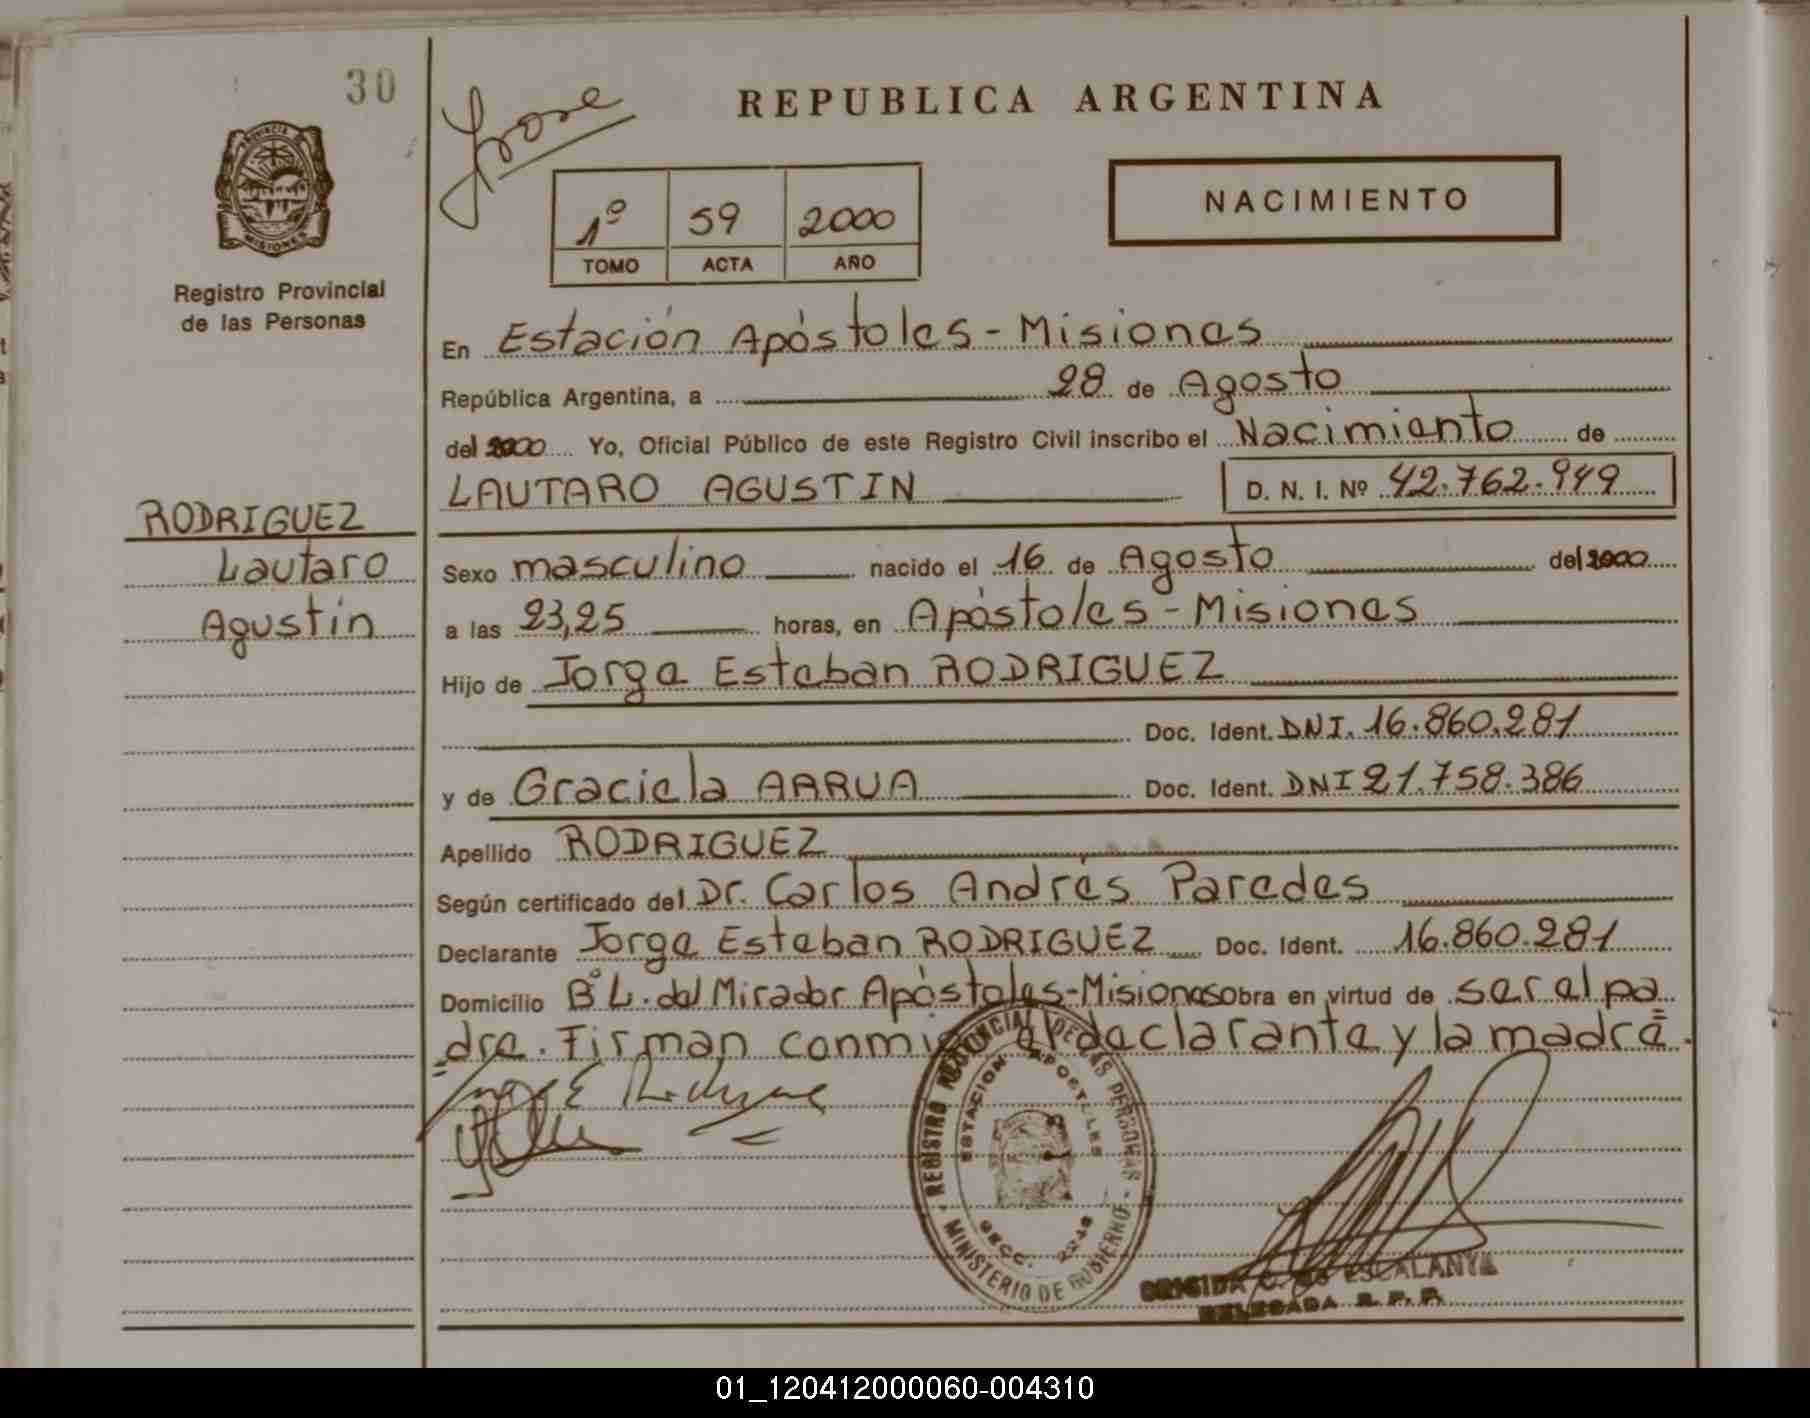 30
REPUBLICA ARGENTINA
PROVINCIA DE
MISIONES
Registro Provincial
de las Personas
1º 59 2000
TOMO ACTA AÑO
NACIMIENTO
En Estación Apóstoles - Misiones
República Argentina, a 28 de Agosto
del 2000 Yo, Oficial Público de este Registro Civil inscribo el Nacimiento de
LAUTARO AGUSTIN D. N. I. Nº 42.762.949
RODRIGUEZ
Lautaro
Agustín
Sexo masculino nacido el 16 de Agosto del 2000
a las 23,25 horas, en Apóstoles - Misiones
Hijo de Jorge Esteban RODRIGUEZ
Doc. Ident. DNI. 16.860.281
y de Graciela ARRUA Doc. Ident. DNI 21.758.386
Apellido RODRIGUEZ
Según certificado del Dr. Carlos Andrés Paredes
Declarante Jorge Esteban RODRIGUEZ Doc. Ident. 16.860.281
Domicilio Bº L. del Mirador Apóstoles-Misiones obra en virtud de ser el pa
dre. Firman conmigo el declarante y la madre.
REGISTRO PROVINCIAL DE LAS PERSONAS
ESTACION APOSTOLES
SECC.
MINISTERIO DE GOBIERNO
ESCALANTE
DELEGADA R. P. P.
01_120412000060-004310